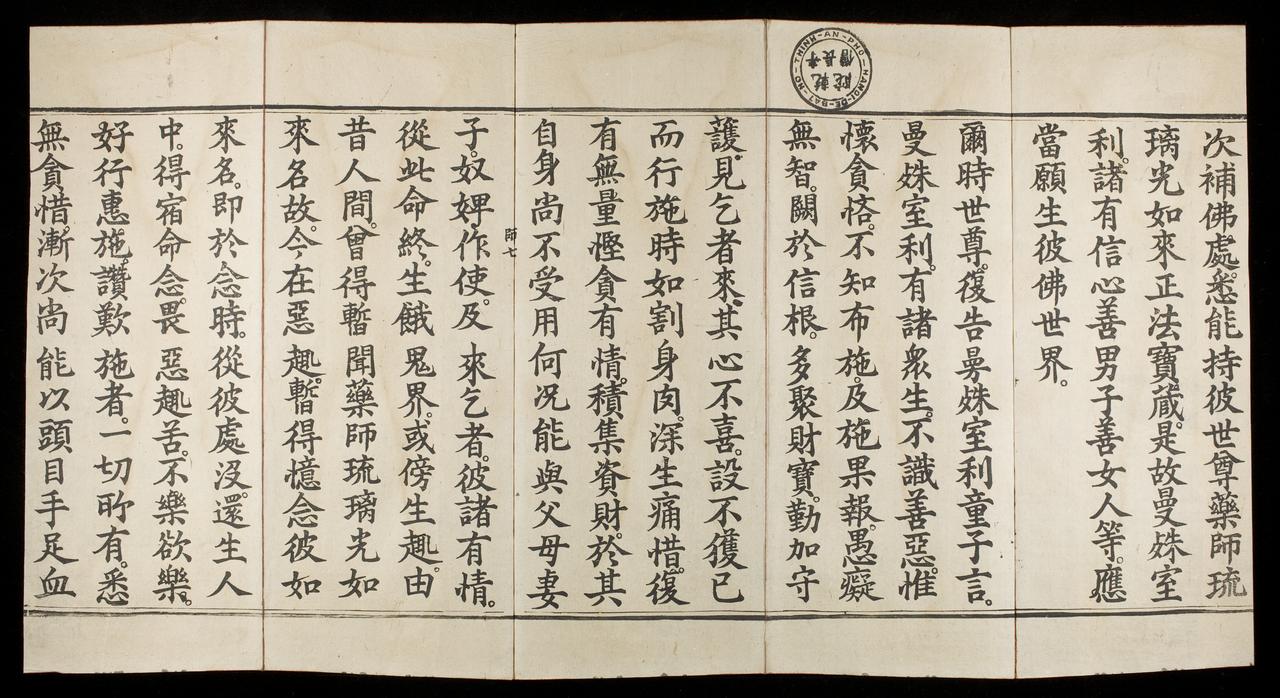 次補佛處。悉能持彼世尊藥師琉
璃光如來正法寶藏。是故曼姝室
利。諸有信心善男子善女人等。應
當願生彼佛世界。
爾時世尊。復告曼姝室利童子言。
曼姝室利。有諸眾生。不識善惡。惟
懷貪悋。不知布施。及施果報。愚癡
無智。闕於信根。多聚財寶。勤加守
THINH-AN-PHO-HANOI-DE-DAT-HO
護。見乞者來。其心不喜。設不獲已
而行施時如割身肉。深生痛惜。復
有無量慳貪有情。積集資財。於其
自身尚不受用何况能與父母妻
師七
子。奴婢。作使。及來乞者。彼諸有情。
從此命終。生餓鬼界。或傍生趣。由
昔人間。曾得暫聞藥師琉璃光如
來名故。今在惡趣。暫得憶念彼如
來名。即於念時。從彼處沒。還生人
中。得宿命念。畏惡趣苦。不樂欲樂。
好行惠施。讚歎施者。一切所有。悉
無貪惜。漸次尚能以頭目手足血